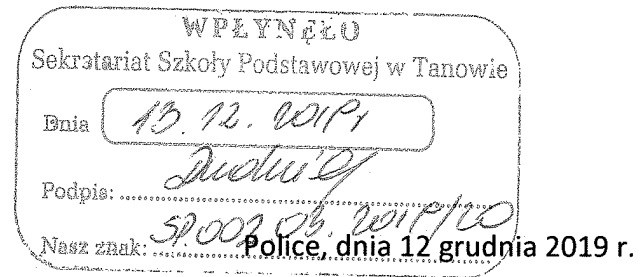 WPŁYNĘŁO
Sekretariat Szkoły Podstawowej w Tanowie
Dnia 13. 12. 2019r
Podpis:
Nasz znak: SP.002.03.2019/20
Police, dnia 12 grudnia 2019 r.